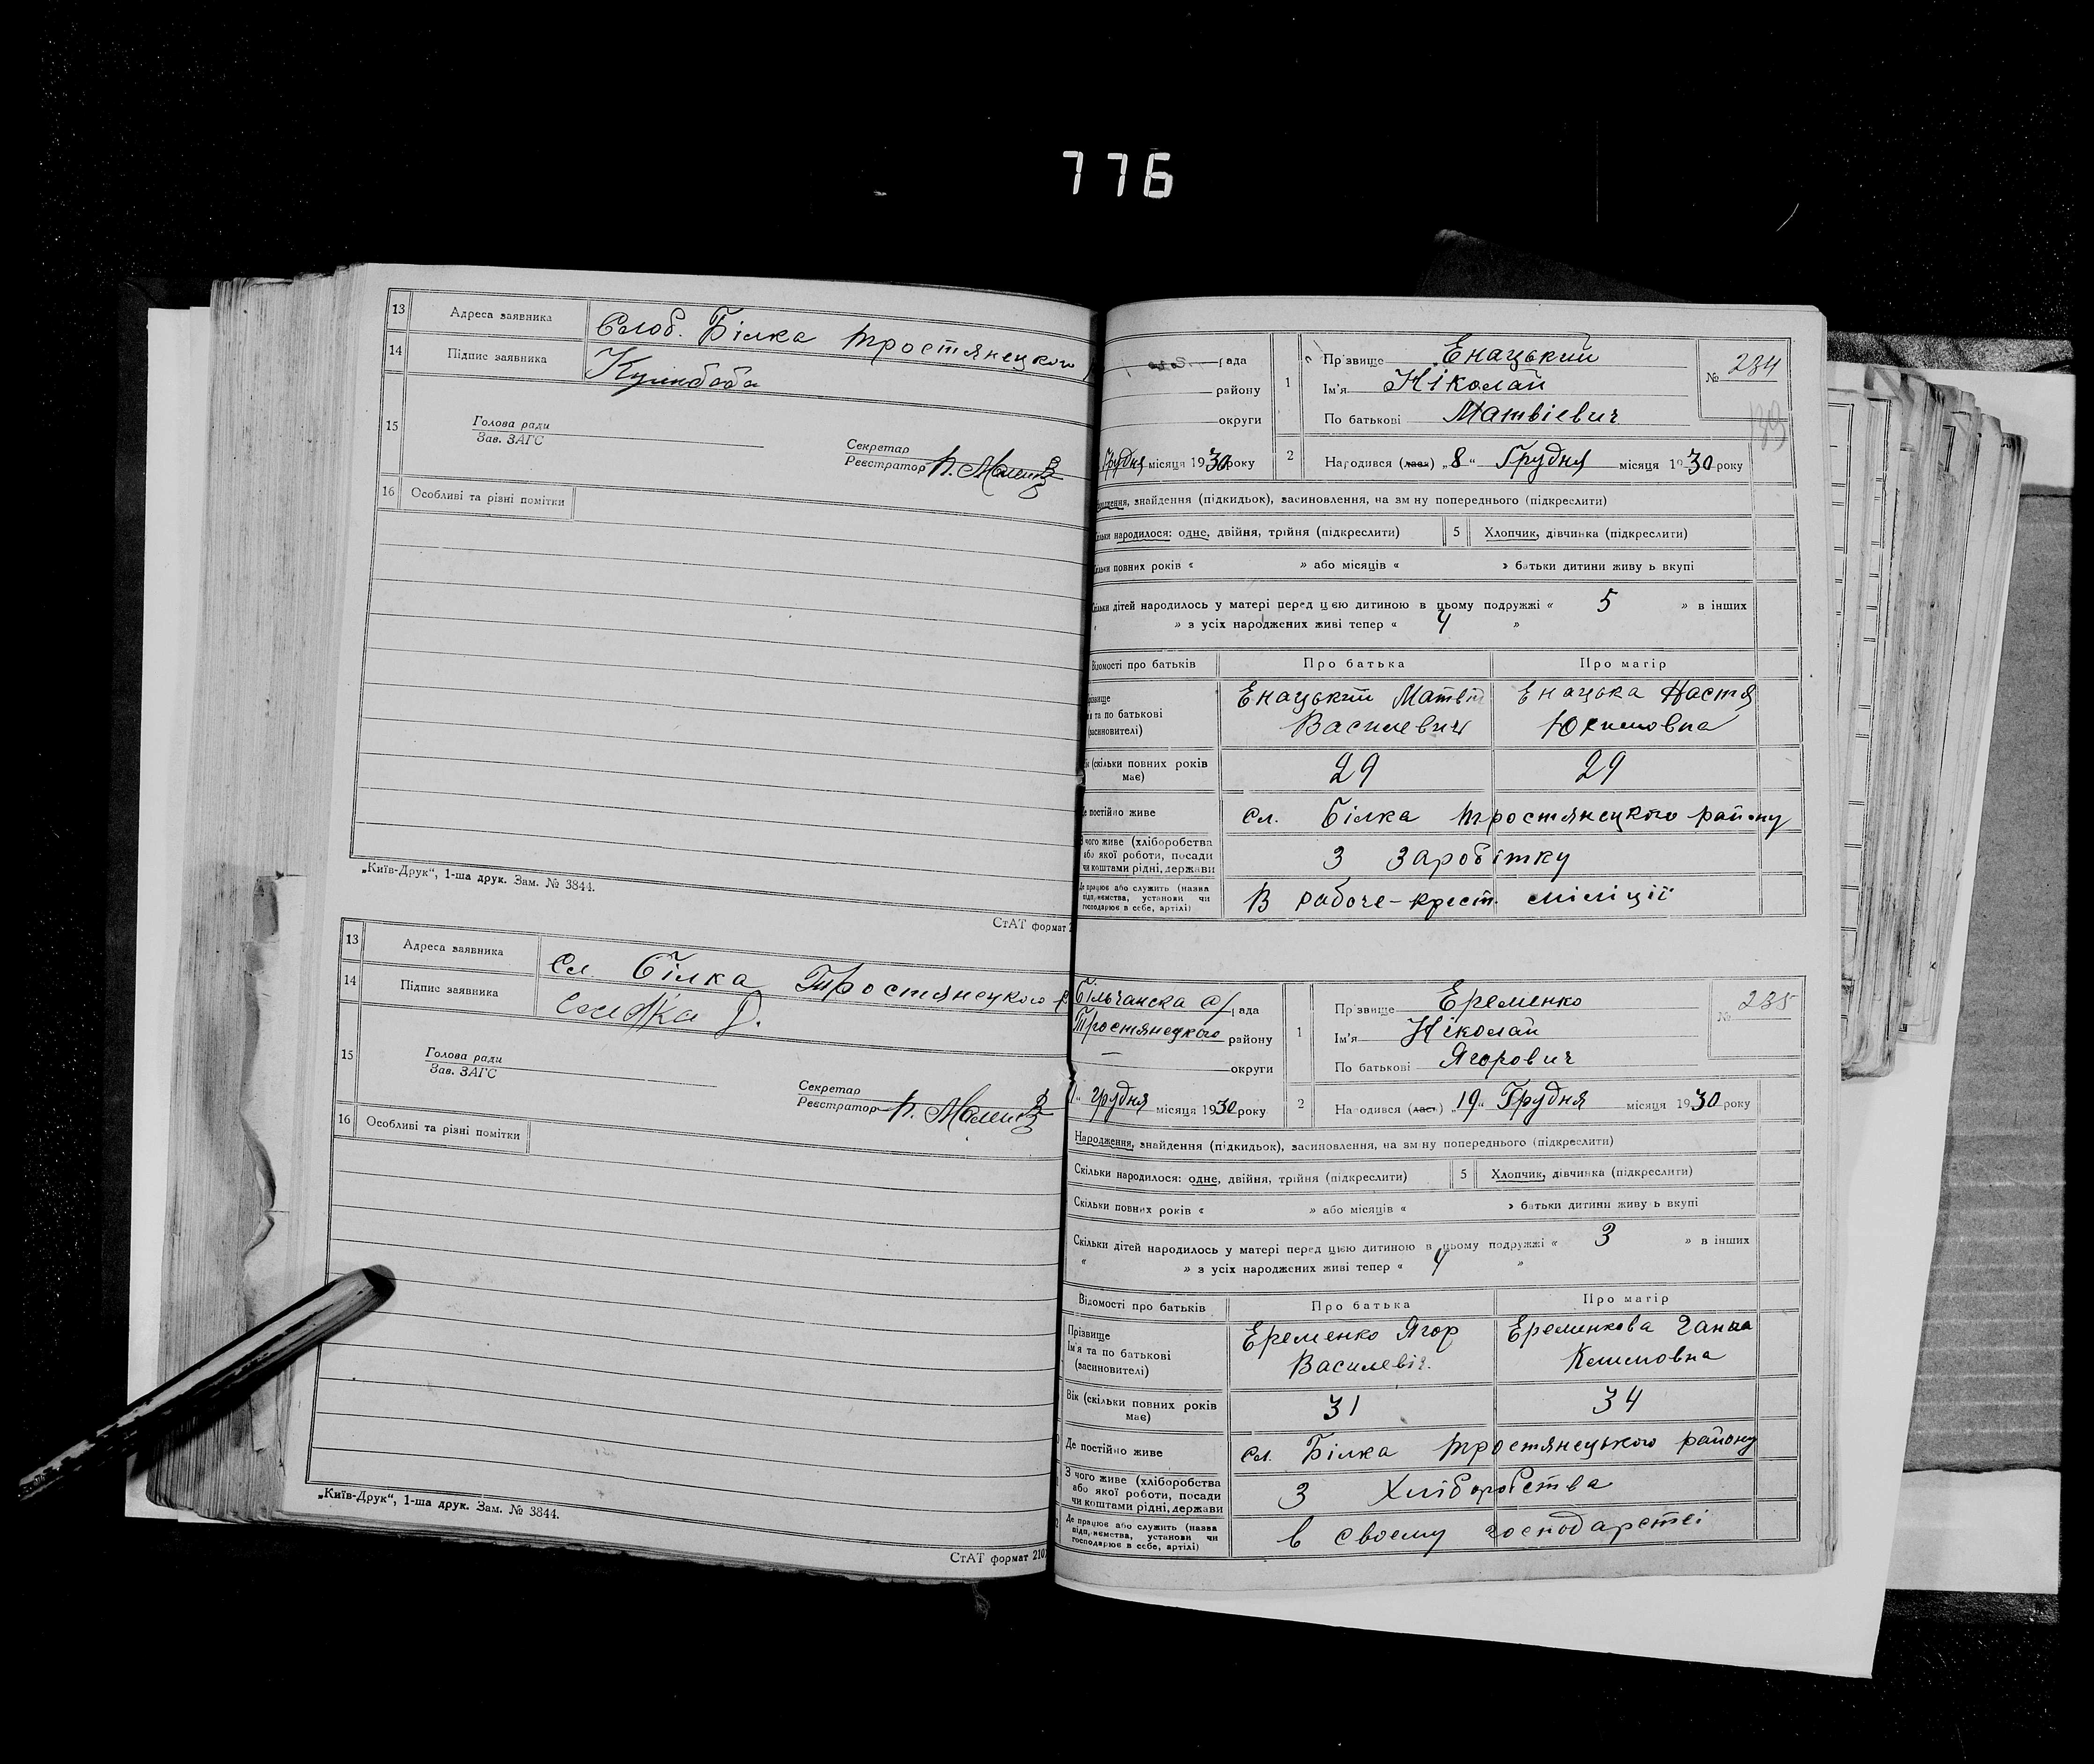 776
13 Адреса заявника Слоб. Білка тростянецкого
14 Підпис заявника
15 Голова ради
Зав. ЗАГС
Секретар
Реєстратор
16 Особливі та різні помітки
„Київ-Друк“, 1-ша друк. Зам. № 3844.
СтАТ формат
13 Адреса заявника Сл. Білка Тростянецкого р
14 Підпис заявника
15 Голова ради
Зав. ЗАГС
Секретар
Реєстратор
16 Особливі та різні помітки
„Київ-Друк“, 1-ша друк. Зам. № 3844.
СтАТ формат 210
рада
району
округи
Грудня місяця 1930 року
1 Прізвище Енацький
Ім'я Ніколай
По батькові Матвіевич
№ 234
139
2 Народився (лась) „8“ Грудня місяця 1930 року
знайдення (підкидьок), засиновлення, на зміну попереднього (підкреслити)
народилося: одне, двійня, трійня (підкреслити)
5 Хлопчик, дівчинка (підкреслити)
повних років « » або місяців « » батьки дитини живуть вкупі
дітей народилось у матері перед цією дитиною в цьому подружжі « 5 » в інших
» з усіх народжених живі тепер « 4 »
Відомості про батьків Про батька Про матір
та по батькові
(засиновителі)
Енацький Матвій
Василевич
Енацька Настя
Юхимовна
(скільки повних років має) 29 29
постійно живе сл. Білка тростянецкого району
З чого живе (хліборобства
або якої роботи, посади
чи коштами рідні, держави
З заробітку
Де працює або служить (назва
підприємства, установи чи
господарює в себе, артілі)
В рабоче-крест. міліції
Більчанска с/рада
Тростянецкого району
— округи
Грудня місяця 1930 року
1 Прізвище Еременко
Ім'я Ніколай
По батькові Ягорович
№ 235
2 Народився (лась) „19“ Грудня місяця 1930 року
Народження, знайдення (підкидьок), засиновлення, на зміну попереднього (підкреслити)
Скільки народилося: одне, двійня, трійня (підкреслити)
5 Хлопчик, дівчинка (підкреслити)
Скільки повних років « » або місяців « » батьки дитини живуть вкупі
Скільки дітей народилось у матері перед цією дитиною в цьому подружжі « 3 » в інших
« » з усіх народжених живі тепер « 4 »
Відомості про батьків Про батька Про матір
Прізвище
Ім'я та по батькові
(засиновителі)
Еременко Ягор
Василевіч.
Еременкова Ганна
Вік (скільки повних років має) 31 34
Де постійно живе сл. Білка тростянецького району
З чого живе (хліборобства
або якої роботи, посади
чи коштами рідні, держави
З Хліборобства
Де працює або служить (назва
підприємства, установи чи
господарює в себе, артілі)
в своему господарстві